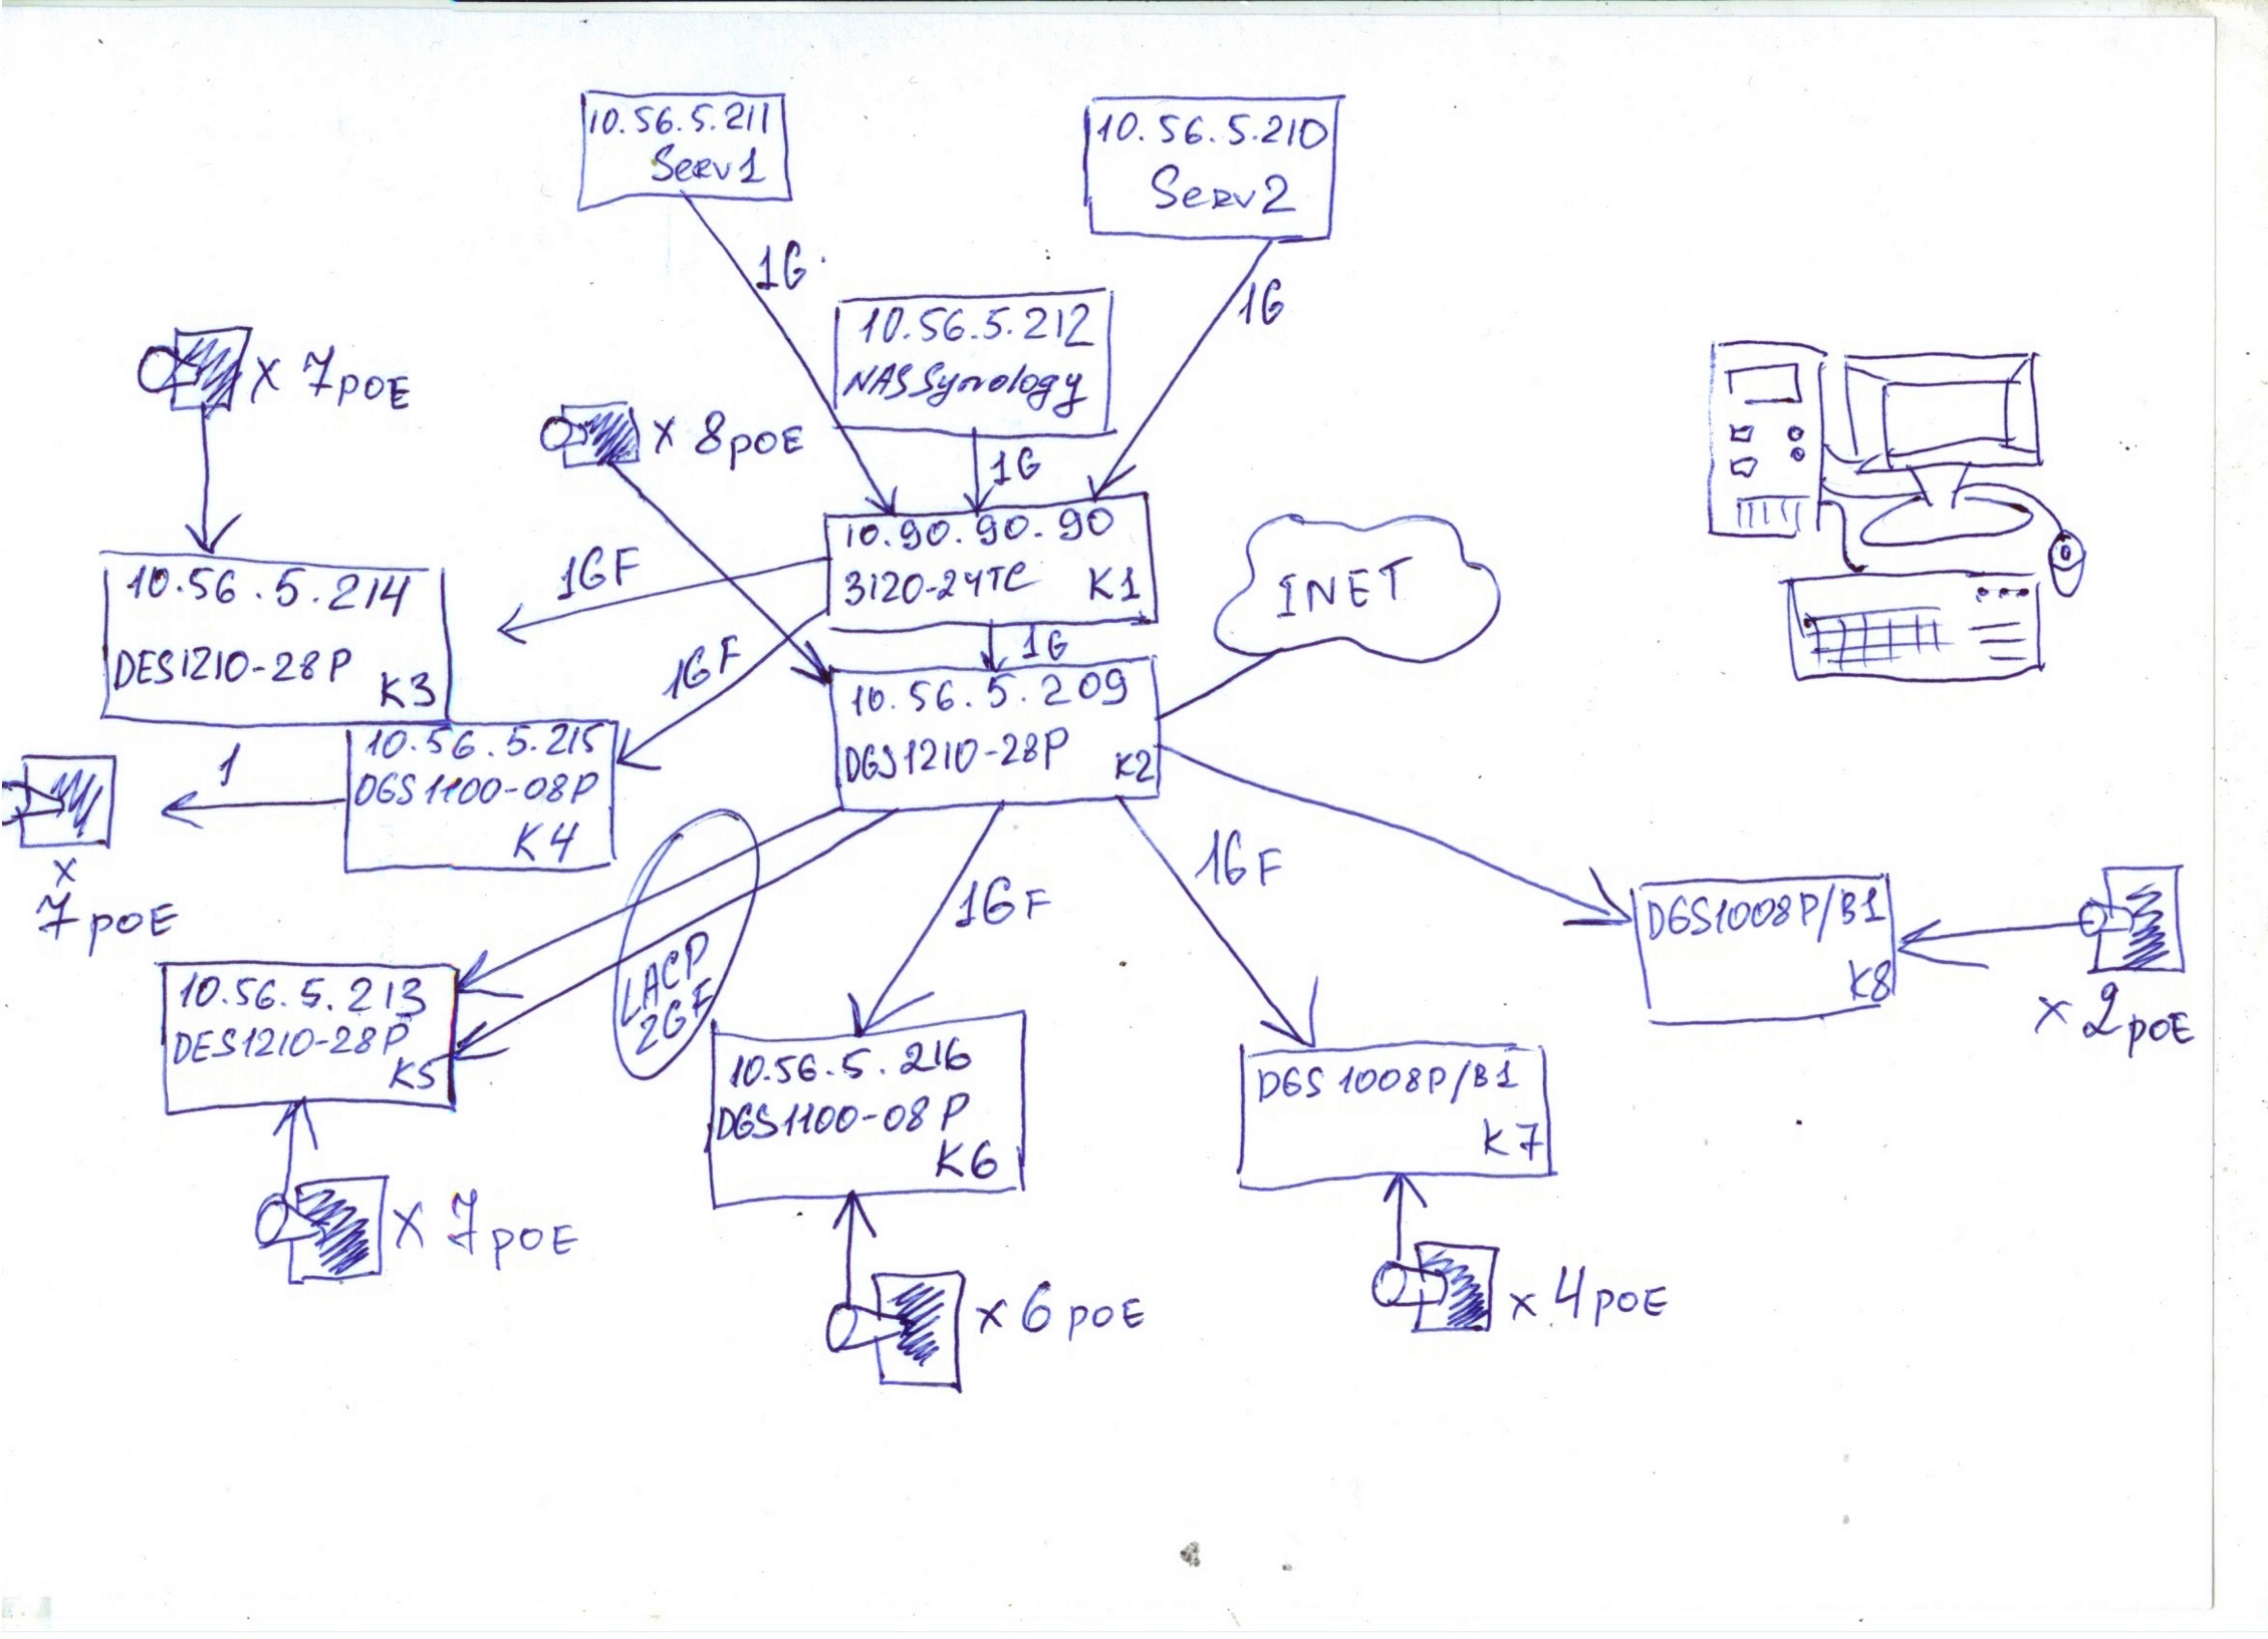 10.56.5.211
Serv1
10.56.5.210
Serv2
1G
1G
10.56.5.212
NASSynology
x 7POE
x 8POE
1G
10.90.90.90
3120-24TC K1
1GF
INET
10.56.5.214
DES1210-28P
K3
1G
1GF
10.56.5.209
DGS1210-28P
K2
10.56.5.215
DGS1100-08P
K4
1
x
7POE
1GF
1GF
LACP
2GF
DGS1008P/B1
K8
x 2POE
10.56.5.213
DES1210-28P
K5
10.56.5.216
DGS1100-08P
K6
DGS1008P/B1
K7
x 7POE
x 6POE
x 4POE